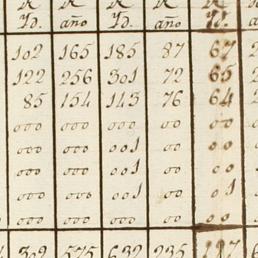 año
102 165 185 87 67
122 256 301 72 65
85 154 143 76 64
000 000 000 00 00
000 000 001 00 01
000 000 001 00 01
000 000 001 00 01
000 000 000 00 00
309 575 632 235